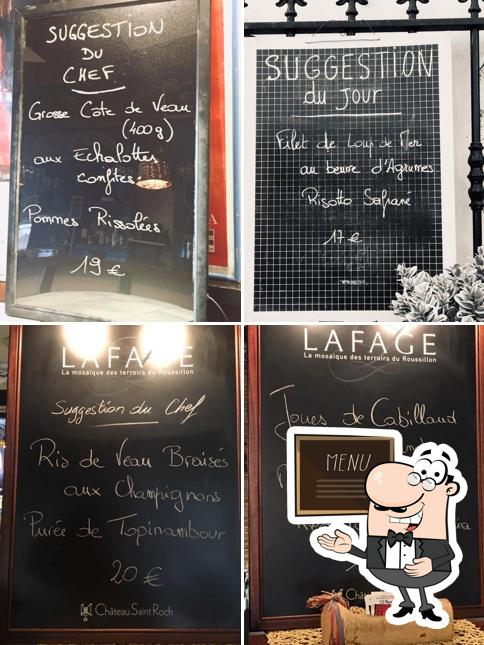 SUGGESTION
DU
CHEF
Grosse Côte de Veau
(400g)
aux Echalottes
confites
Pommes Rissolées
19 €
SUGGESTION
du JOUR
Filet de Loup de Mer
au beurre d'Agrumes
Risotto Safrané
17 €
LAFAGE
La mosaïque des terroirs du Roussillon
Suggestion du Chef
Ris de Veau Braisés
aux Champignons
Purée de Topinambour
20 €
Château Saint Roch
LAFAGE
La mosaïque des terroirs du Roussillon
Joues de Cabillaud
MENU